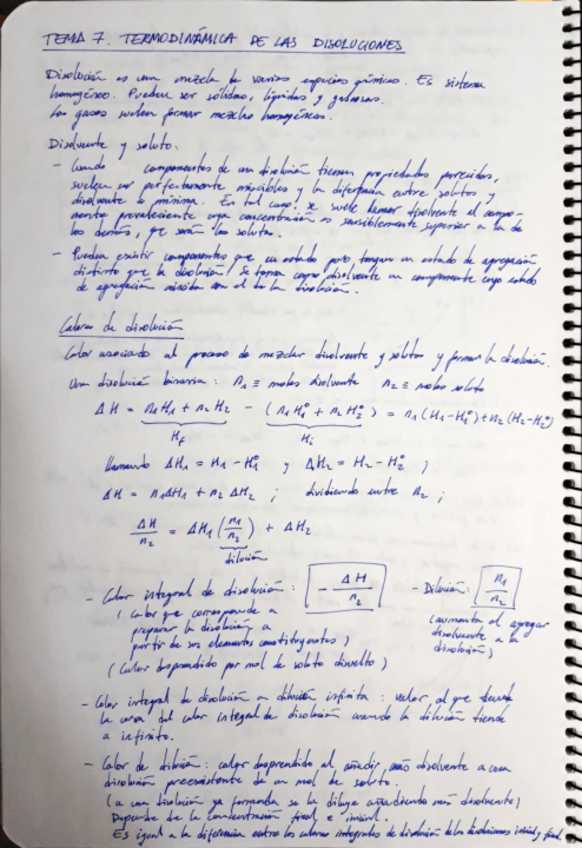 TEMA 7. TERMODINÁMICA DE LAS DISOLUCIONES
Disolución es una mezcla de varias especies químicas. Es sistema
homogéneo. Pueden ser sólidas, líquidas y gaseosas.
Los gases suelen formar mezclas homogéneas.
Disolvente y soluto.
- Cuando componentes de una disolución tienen propiedades parecidas,
suelen ser perfectamente miscibles y la diferencia entre solutos y
disolvente es mínima. En tal caso, se suele llamar disolvente al compo-
nente prevaleciente cuya concentración es sensiblemente superior a la de
los demás, que serán los solutos.
- Pueden existir componentes que en estado puro tengan un estado de agregación
distinto que la disolución, se toma como disolvente un componente cuyo estado
de agregación coincida con el de la disolución.
Calores de disolución
Calor asociado al proceso de mezclar disolvente y solutos y formar la disolución.
Una disolución binaria: n₁ ≡ moles disolvente n₂ ≡ moles soluto
ΔH = n₁H₁ + n₂H₂ - (n₁H₁⁰ + n₂H₂⁰) = n₁(H₁-H₁⁰)+n₂(H₂-H₂⁰)
H_f H_i
llamando ΔH₁ = H₁ - H₁⁰ y ΔH₂ = H₂ - H₂⁰ ;
ΔH = n₁ΔH₁ + n₂ΔH₂ ; dividiendo entre n₂ ;
ΔH/n₂ = ΔH₁ (n₁/n₂) + ΔH₂
dilución
- Calor integral de disolución: -ΔH/n₂ - Dilución: n₁/n₂
(calor que corresponde a
preparar la disolución a
partir de sus elementos constituyentes)
(aumenta al agregar
disolvente a la
disolución)
(calor desprendido por mol de soluto disuelto)
- Calor integral de disolución a dilución infinita: valor al que tiende
la curva del calor integral de disolución cuando la dilución tiende
a infinito.
- Calor de dilución: calor desprendido al añadir más disolvente a una
disolución preexistente de un mol de soluto.
(a una disolución ya formada se la diluye añadiendo más disolvente)
Depende de la concentración final e inicial.
Es igual a la diferencia entre los calores integrales de disolución de las disoluciones inicial y final.